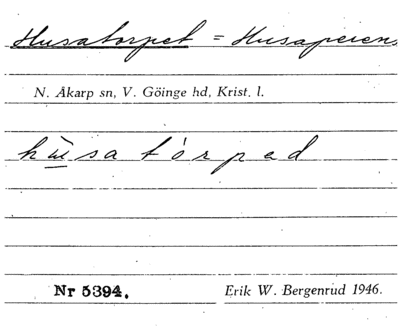 Husatorpet = Husaperens
N. Åkarp sn, V. Göinge hd, Krist. l.
hùsa tórpəd
Nr 5394.
Erik W. Bergenrud 1946.